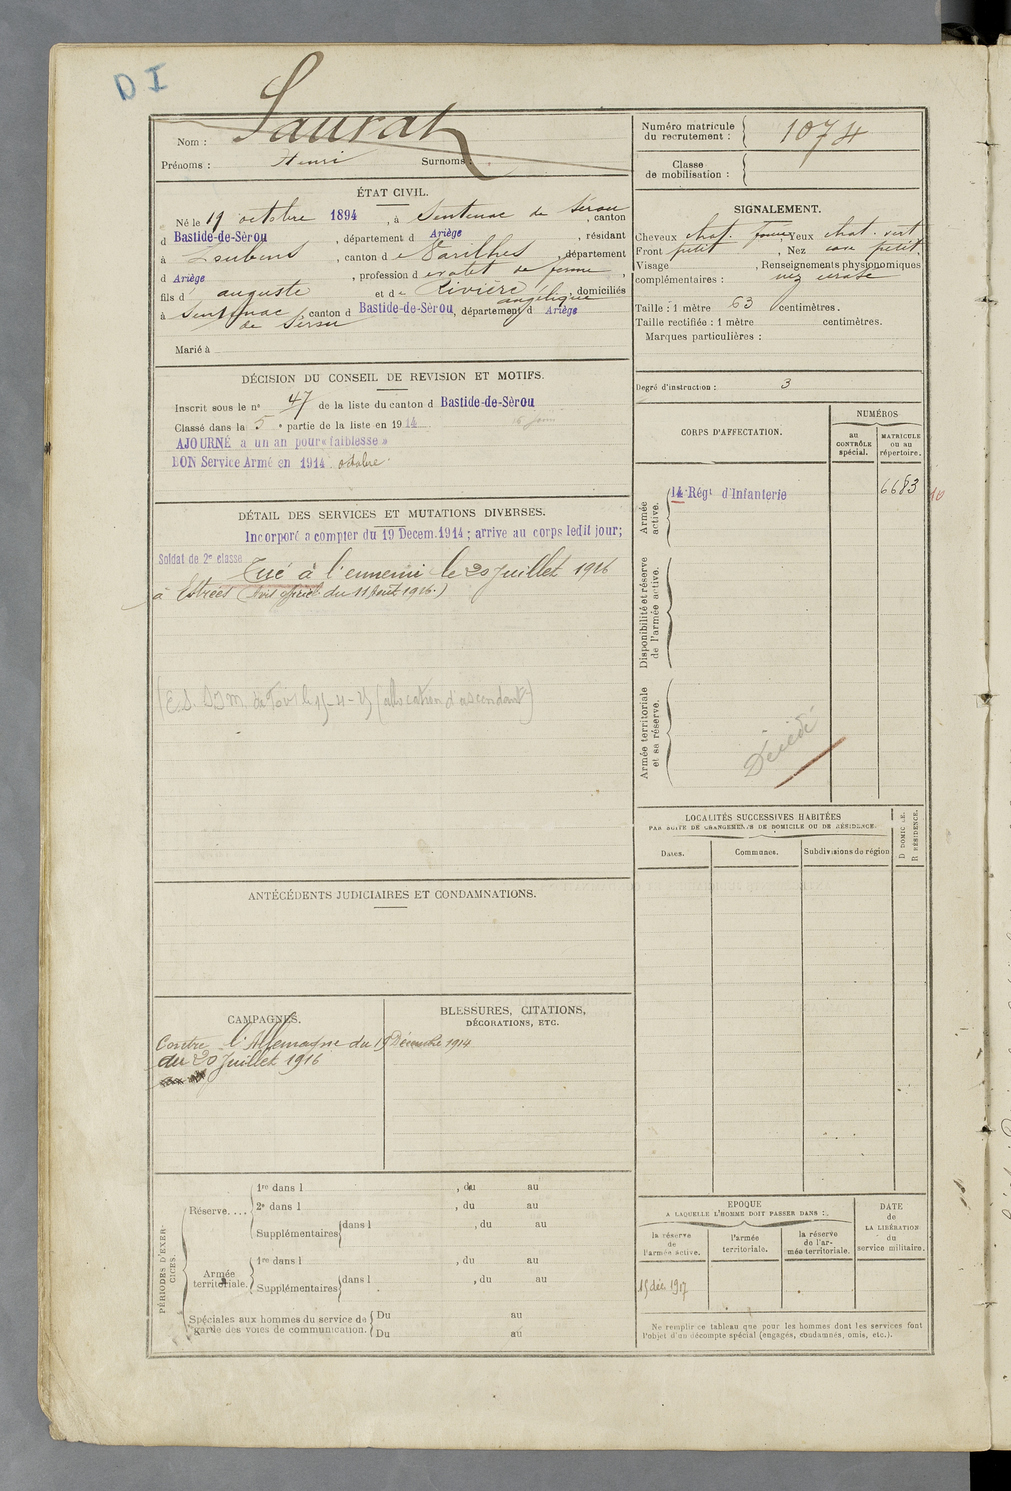 D I
Nom : Saurat
Prénoms : Henri Surnoms :
Numéro matricule du recrutement : 1074
Classe de mobilisation :
ÉTAT CIVIL.
Né le 19 octobre 1894, à Sentenac de Sérou, canton
d Bastide-de-Sérou, département d Ariège, résidant
à Loubens, canton de Varilhes, département
d Ariège, profession de valet de ferme,
fils d auguste et de Rivière angélique, domiciliés
à Sentenac de Sérou, canton d Bastide-de-Sérou, département d Ariège
Marié à
SIGNALEMENT.
Cheveux chat. , Yeux chat. vert
Front petit, Nez petit.
Visage , Renseignements physionomiques
complémentaires : nez
Taille : 1 mètre 63 centimètres.
Taille rectifiée : 1 mètre centimètres.
Marques particulières :
Degré d'instruction : 3
DÉCISION DU CONSEIL DE REVISION ET MOTIFS.
Inscrit sous le n° 47 de la liste du canton d Bastide-de-Sérou
Classé dans la 5e partie de la liste en 1914
AJOURNÉ a un an pour « faiblesse »
BON Service Armé en 1914 octobre.
DÉTAIL DES SERVICES ET MUTATIONS DIVERSES.
Incorporé a compter du 19 Decem. 1914 ; arrive au corps ledit jour;
Soldat de 2e classe Tué à l'ennemi le 20 Juillet 1916
à Estrées (Avis officiel du 11 Août 1916.)
(allocation d'ascendant)
CORPS D'AFFECTATION.
NUMÉROS
au CONTRÔLE spécial.
MATRICULE ou au répertoire.
Armée active.
14e Régt d'Infanterie 6683 10
Disponibilité et réserve de l'armée active.
Armée territoriale et sa réserve.
Décédé
LOCALITÉS SUCCESSIVES HABITÉES
PAR SUITE DE CHANGEMENTS DE DOMICILE OU DE RÉSIDENCE.
Dates.
Communes.
Subdivisions de région
D DOMICILE.
R RÉSIDENCE.
ANTÉCÉDENTS JUDICIAIRES ET CONDAMNATIONS.
CAMPAGNES.
Contre l'Allemagne du 19 Décembre 1914
au 20 Juillet 1916
BLESSURES, CITATIONS,
DÉCORATIONS, ETC.
PÉRIODES D'EXERCICES.
Réserve....
1re dans l , du au
2e dans l , du au
Supplémentaires dans l , du au
Armée territoriale.
1re dans l , du au
Supplémentaires dans l , du au
Spéciales aux hommes du service de garde des voies de communication.
Du au
Du au
EPOQUE
A LAQUELLE L'HOMME DOIT PASSER DANS :
la réserve de l'armée active.
l'armée territoriale.
la réserve de l'armée territoriale.
DATE de LA LIBÉRATION du service militaire.
15 déc 1917
Ne remplir ce tableau que pour les hommes dont les services font
l'objet d'un décompte spécial (engagés, condamnés, omis, etc.).